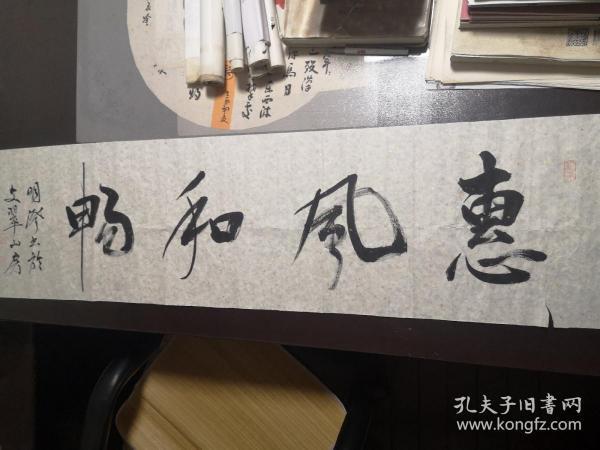 惠风和畅
明澄书於
文翠山房
孔夫子旧书网
www.kongfz.com